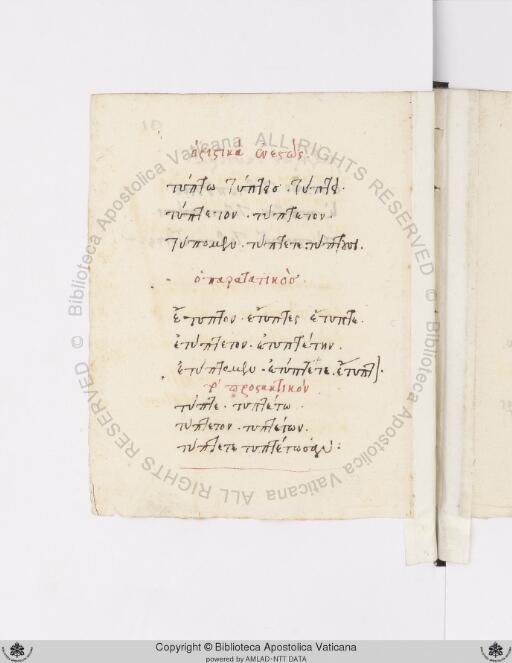 ὁριστικὰ ἐνεστώς.
τύπτω τύπτεισ. τύπτει.
τύπτετον. τύπτετον.
τύπομεν. τύπτετε. τύπτουσι.
ὁ παρατατικόσ.
ἔτυπτον. ἔτυπτες ἔτυπτε.
ἐτύπτετον. ἐτυπτέτην.
ἐτύπτομεν. ἐτύπτετε. ἔτυπτ].
προστακτικόν
τύπτε. τυπτέτω.
τύπτετον. τυπτέτων.
τύπτετε τυπτέτωσαν:
© Biblioteca Apostolica Vaticana ALL RIGHTS RESERVED
© Biblioteca Apostolica Vaticana ALL RIGHTS RESERVED
Copyright © Biblioteca Apostolica Vaticana
powered by AMLAD-NTT DATA